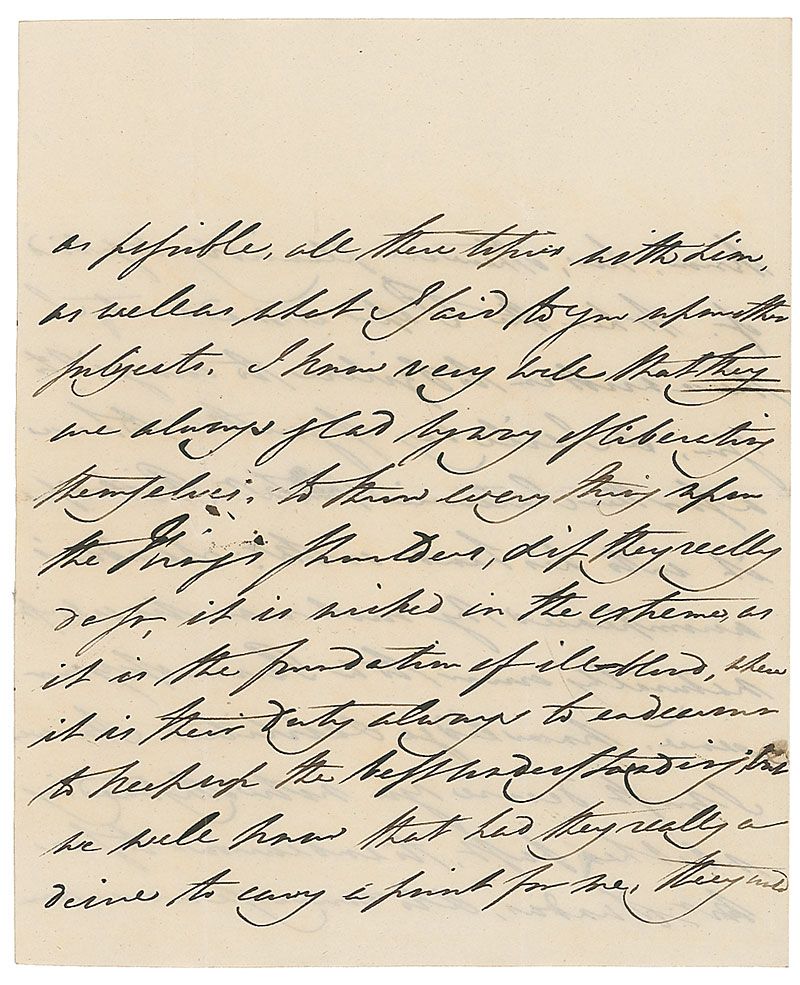 as possible, all these topics with him,
as well as what I said to you upon other
subjects. I know very well that they
are always glad by way of liberating
themselves, to throw every thing upon
the King's shoulders, & if they really
do so, it is wicked in the extreme, as
it is the foundation of ill-blood, where
it is their Duty always to endeavour
to keep up the best understanding; but
we well know that had they really a
desire to carry a point for me, they would